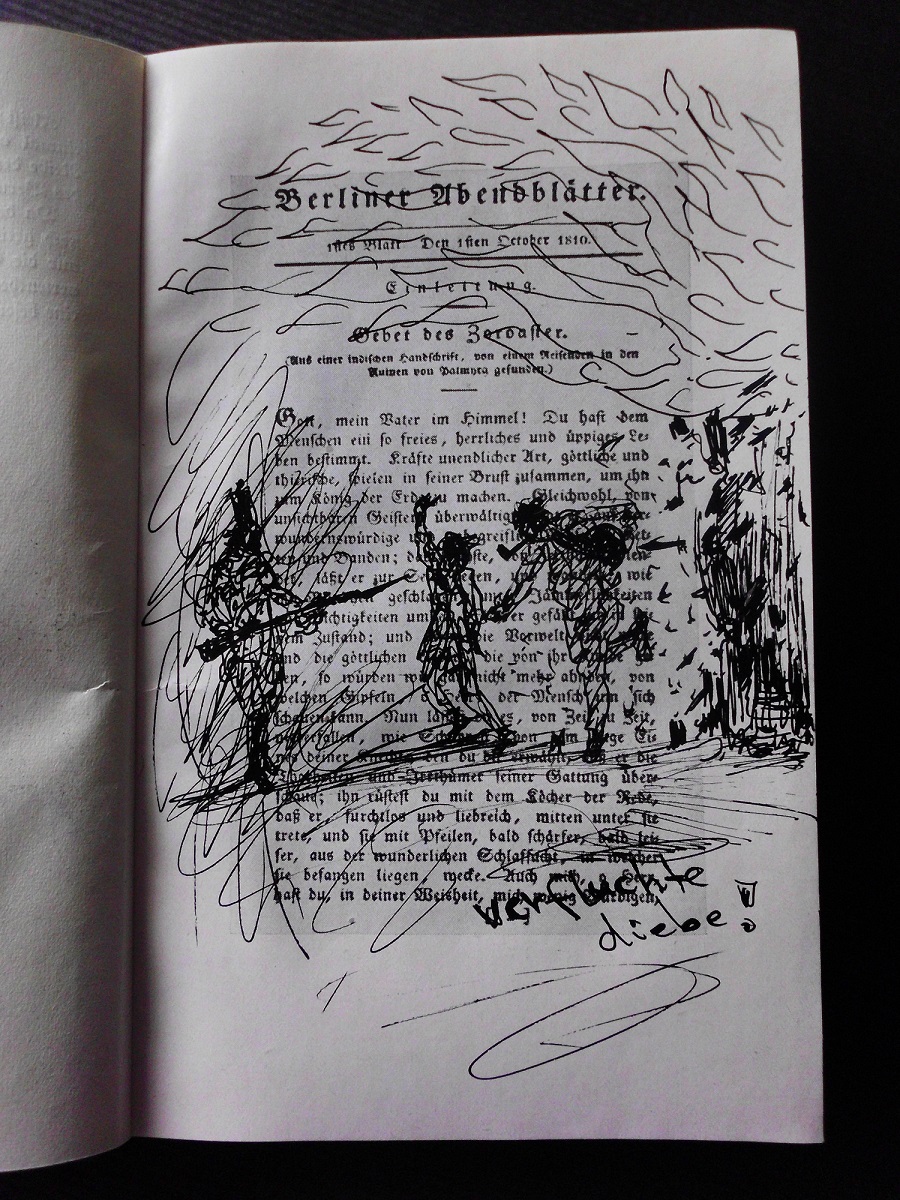 Berliner Abendblätter.
1stes Blatt Den 1sten October 1810.
Einleitung.
Gebet des Zoroaster.
(Aus einer indischen Handschrift, von einem Reisenden in den
Ruinen von Palmyra gefunden.)
Gott, mein Vater im Himmel! Du hast dem
Menschen ein so freies, herrliches und üppiges Le-
ben bestimmt. Kräfte unendlicher Art, göttliche und
thierische, spielen in seiner Brust zusammen, um ihn
zum König der Erde zu machen. Gleichwohl, von
unsichtbaren Geistern überwältigt,
wundernswürdige und
ten und Banden;
läßt er zur Seite liegen, und wie
geschlagen, unter Jämmerlichkeiten
Nichtigkeiten
Zustand; und die Vorwelt
und die göttlichen die von ihr
ten, so würden wir gar nicht mehr ahnden, von
welchen Gipfeln, o Herr! der Mensch um sich
schauen kann. Nun lässest du es, von Zeit zu Zeit,
niederfallen, wie Schuppen, von dem Auge Ei-
nes deiner Knechte, den du dir erwählt, daß er die
Thorheiten und Irrthümer seiner Gattung über-
schaue; ihn rüstest du mit dem Köcher der Rede,
daß er, furchtlos und liebreich, mitten unter sie
trete, und sie mit Pfeilen, bald schärfer, bald lei-
ser, aus der wunderlichen Schlafsucht, in welcher
sie befangen liegen, wecke. Auch mich, o Herr,
hast du, in deiner Weisheit, mich wenig Würdigen,
verfluchte
diebe!